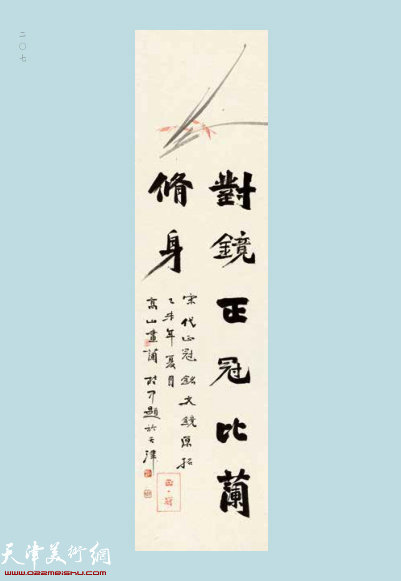 二〇七
對鏡正冠比蘭
脩身
宋代正冠銘文鏡原拓
乙未年夏月
高山畫蘭
題於天津
正冠
天津美術網
www.022meishu.com